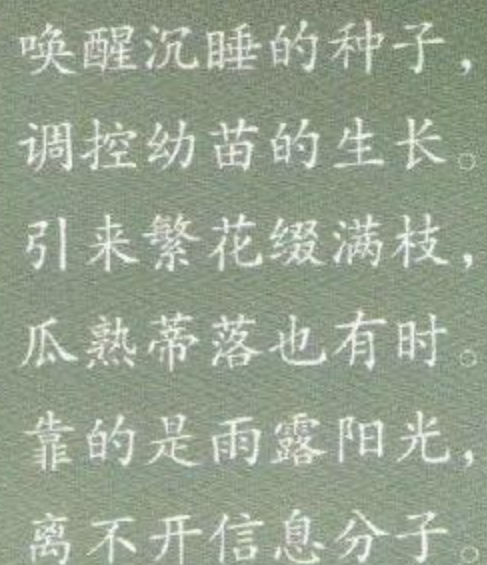 唤醒沉睡的种子，
调控幼苗的生长。
引来繁花缀满枝，
瓜熟蒂落也有时。
靠的是雨露阳光，
离不开信息分子。